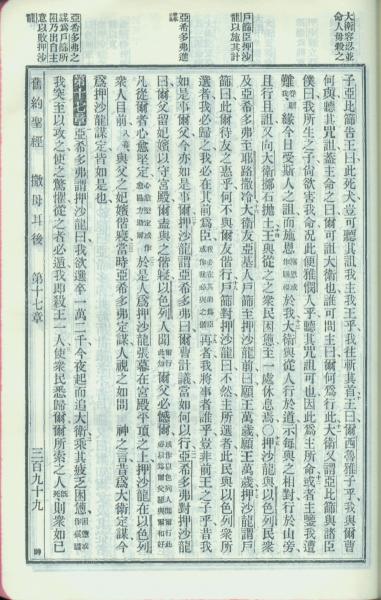 大衛容忍並
命人毋殺之
戶篩臣押沙
龍以施其計
亞希多弗進
謀
亞希多弗之
謀為戶篩所
阻乃出自主
意以敗押沙
子亞比篩告王曰此死犬豈可聽其詛我主我王乎我往斬其首王曰爾西魯雅子乎我與爾曹
何與聽其詛蓋主命之曰爾可詛大衛也誰可問主曰爾何爲行此大衛又謂亞比篩與諸臣
僕曰我所生之子尚欲害我命況此便雅憫人乎聽其咒詛可也因此爲主所命或者主鑒我遭
難緣今日受斯人之詛而施恩於我大衛與從人行於道示每與之相對行於山旁
且行且詛又向大衛擲石拋土王與從之之衆民困憊至一處休息焉○押沙龍與以色列民衆
及亞希多弗至耶路撒冷大衛友亞基人戶篩至押沙龍前曰願王萬歲願王萬歲押沙龍謂戶
篩曰此爾待友之惠乎何不與爾友偕行戶篩對押沙龍曰不然主所選者此民與以色列衆所
選者我必歸之我必在其前爲臣再者我將事者誰乎豈非前王之子乎昔我
如是事爾父今亦如是事爾押沙龍謂亞希多弗曰爾曹計議當如何以行亞希多弗對押沙龍
曰爾父留妃嬪以守宮殿爾盍與之偕寢以色列人聞爾父必憾爾
凡從爾者心愈堅定於是人爲押沙龍張幕在宮殿平頂之上押沙龍在以色列
衆人目前與父之妃嬪偕寢當時亞希多弗定謀人視之如問 神之言昔爲大衛定謀今
爲押沙龍定謀皆如是也
第十七章亞希多弗謂押沙龍曰我欲選卒一萬二千今夜起而追大衛乘其疲乏困憊
我突至以攻之使之驚懼從之者必逃我即殺王一人使衆民悉歸爾爾所索之人則衆如已
舊約聖經 撒母耳後 第十七章 三百九十九